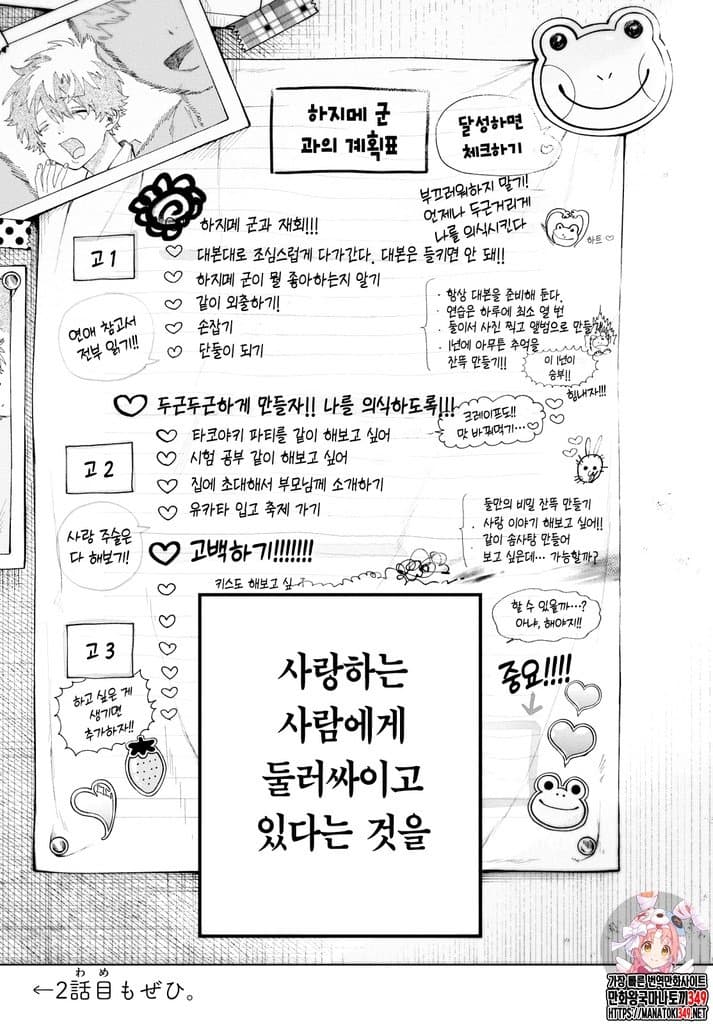 하지메 군
과의 계획표
달성하면
체크하기
부끄러워하지 말기!
언제나 두근거리게
나를 의식시킨다
하트♡
고1
하지메 군과 재회!!!
♡ 대본대로 조심스럽게 다가간다. 대본은 들키면 안 돼!!
♡ 하지메 군이 뭘 좋아하는지 알기
♡ 같이 외출하기!
♡ 손잡기
♡ 단둘이 되기
연애 참고서
전부 읽기!!
· 항상 대본을 준비해 둔다.
· 연습은 하루에 최소 열 번
· 둘이서 사진 찍고 앨범으로 만들기
· 1년에 아무튼 추억을
잔뜩 만들기!!
이 1년이
승부!!
힘내자!!!
♡ 두근두근하게 만들자!! 나를 의식하도록!!!
크레이프도!!
맛 바꿔먹기…♡
고2
♡ 타코야키 파티를 같이 해보고 싶어
♡ 시험 공부 같이 해보고 싶어
♡ 집에 초대해서 부모님께 소개하기
♡ 유카타 입고 축제 가기
사랑 주술은
다 해보기!
둘만의 비밀 잔뜩 만들기
· 사랑 이야기 해보고 싶어!!
같이 송사탕 만들어
보고 싶은데… 가능할까?
♡ 고백하기!!!!!!!
♡ 키스도 해보고 싶
할 수 있을까…?
아냐, 해야지!!
고3
중요!!!!
하고 싶은 게
생기면
추가하자!!
사랑하는
사람에게
둘러싸이고
있다는 것을
←2話目もぜひ。
わ め
가장 빠른 번역만화사이트
만화왕국마나토끼349
HTTPS://MANATOKI349.NET